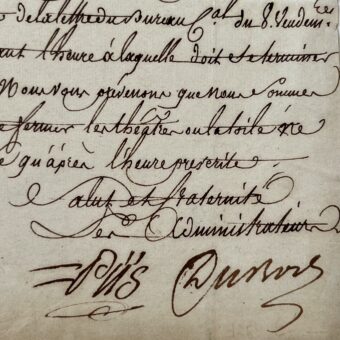 de la lettre du Bureau C.al du 8. Vendem.re
ant l'heure à laquelle doit se terminer
Nous vous prévenons que nous sommes
e fermer les théâtres ou la toile ne
e qu'après l'heure prescrite.
Salut et fraternité
Les Administrateurs
Piis Dubois